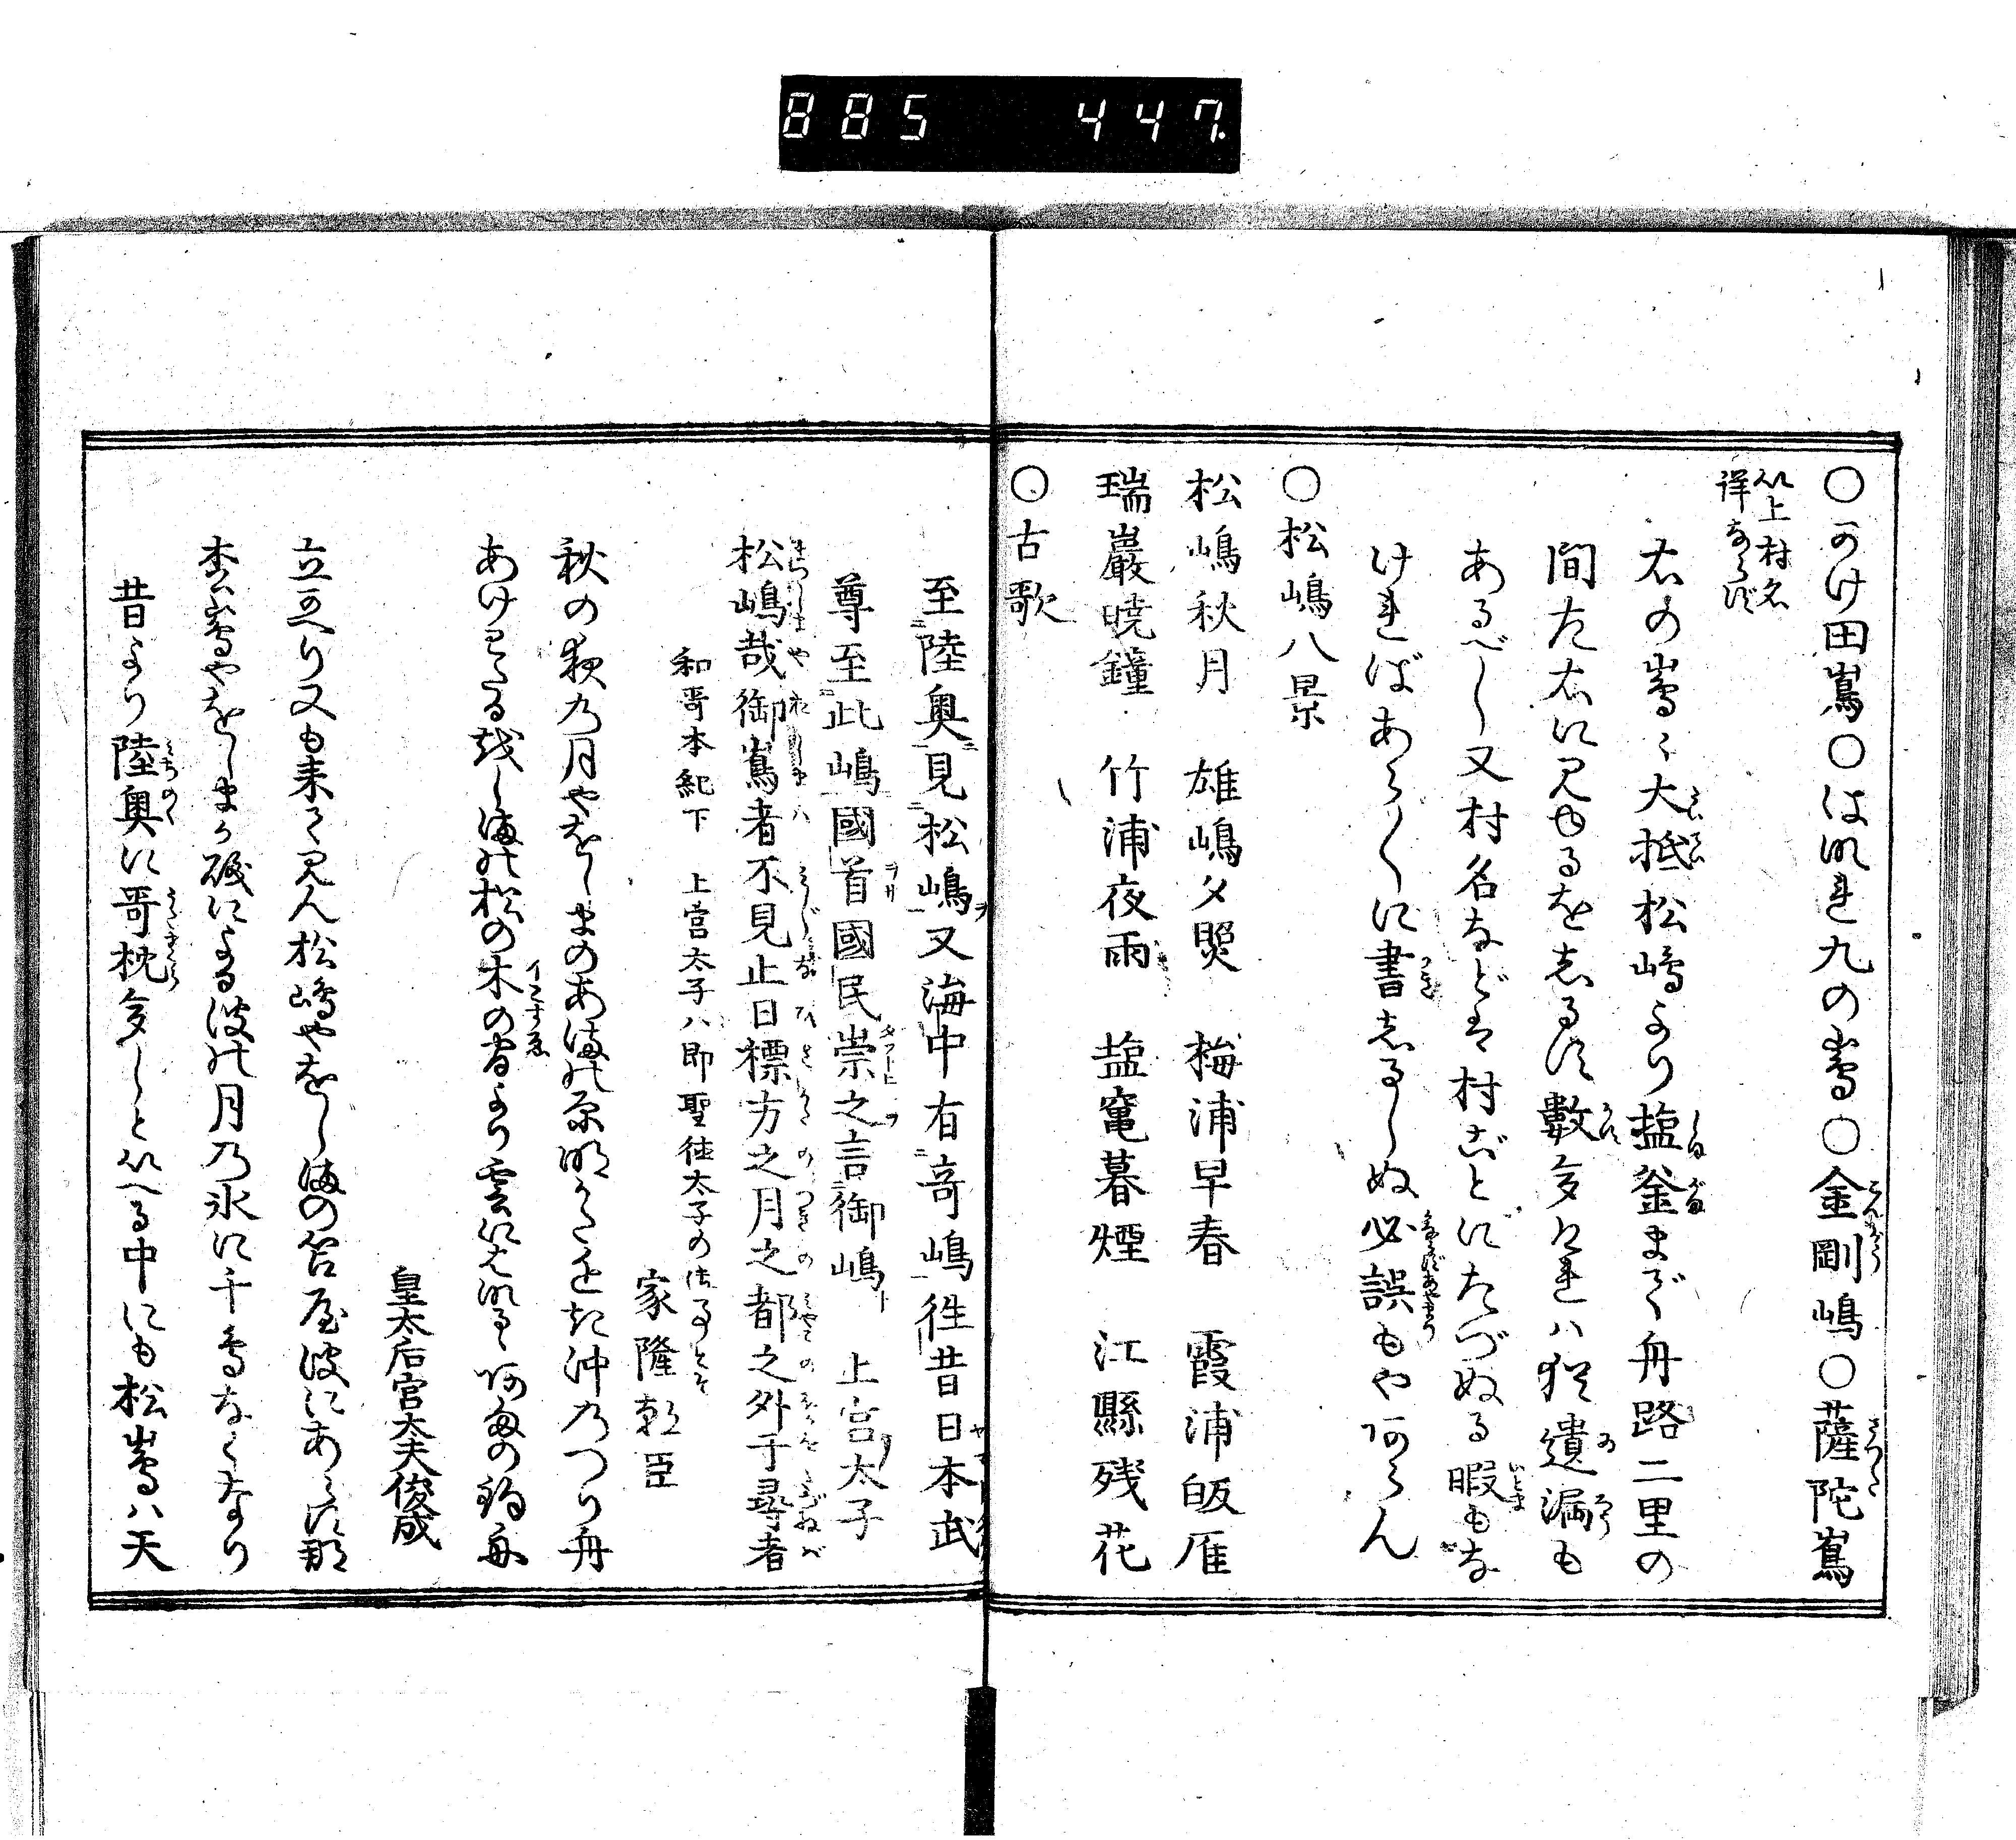 885 447.
〇かけ田嶌〇はなれ九の嶌〇金剛嶋〇薩陀嶌
以上村名
詳ならず
右の嶌々大抵松嶋より塩釜まで舟路二里の
間左右に見ゆるをしるす數多けれハ猶遺漏も
あるべし又村名などは村ごとにたづぬる暇もな
ければあら〱に書しるしぬ必誤もやあらん
〇松嶋八景
松嶋秋月 雄嶋夕照 梅浦早春 霞浦皈雁
瑞巖暁鐘 竹浦夜雨 塩竃暮煙 江縣残花
〇古歌
至陸奥見松嶋又海中有竒嶋徃昔日本武
尊至此嶋國首國民崇之言御嶋 上宮太子
松嶋哉御嶌者不見止日標方之月之都之外于尋者
和哥本紀下 上宮太子ハ即聖徳太子の御事とそ
家隆朝臣
秋の夜乃月やをしまのあまの原明かたちかき沖乃つり舟
あけわたるをしまの松の木の間より雲にはなるゝあまの釣舟
皇太后宮太夫俊成
立かへり又も来て見ん松嶋やをしまの笘屋波にあらすな
松嶌やをしまか磯による波の月乃氷に千鳥なくなり
昔より陸奥に哥枕多しといへる中にも松嶌ハ天